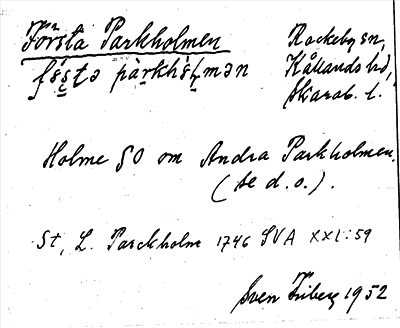 Första Parkholmen
fö́ṣtə pàrkhɔ́lmən
Rackeby sn,
Kållands hd,
Skarab. l.
Holme SO om Andra Parkholmen.
(se d. o.).
St, L. Parckholm 1746 SVA XXI:59
Sven Friberg 1952